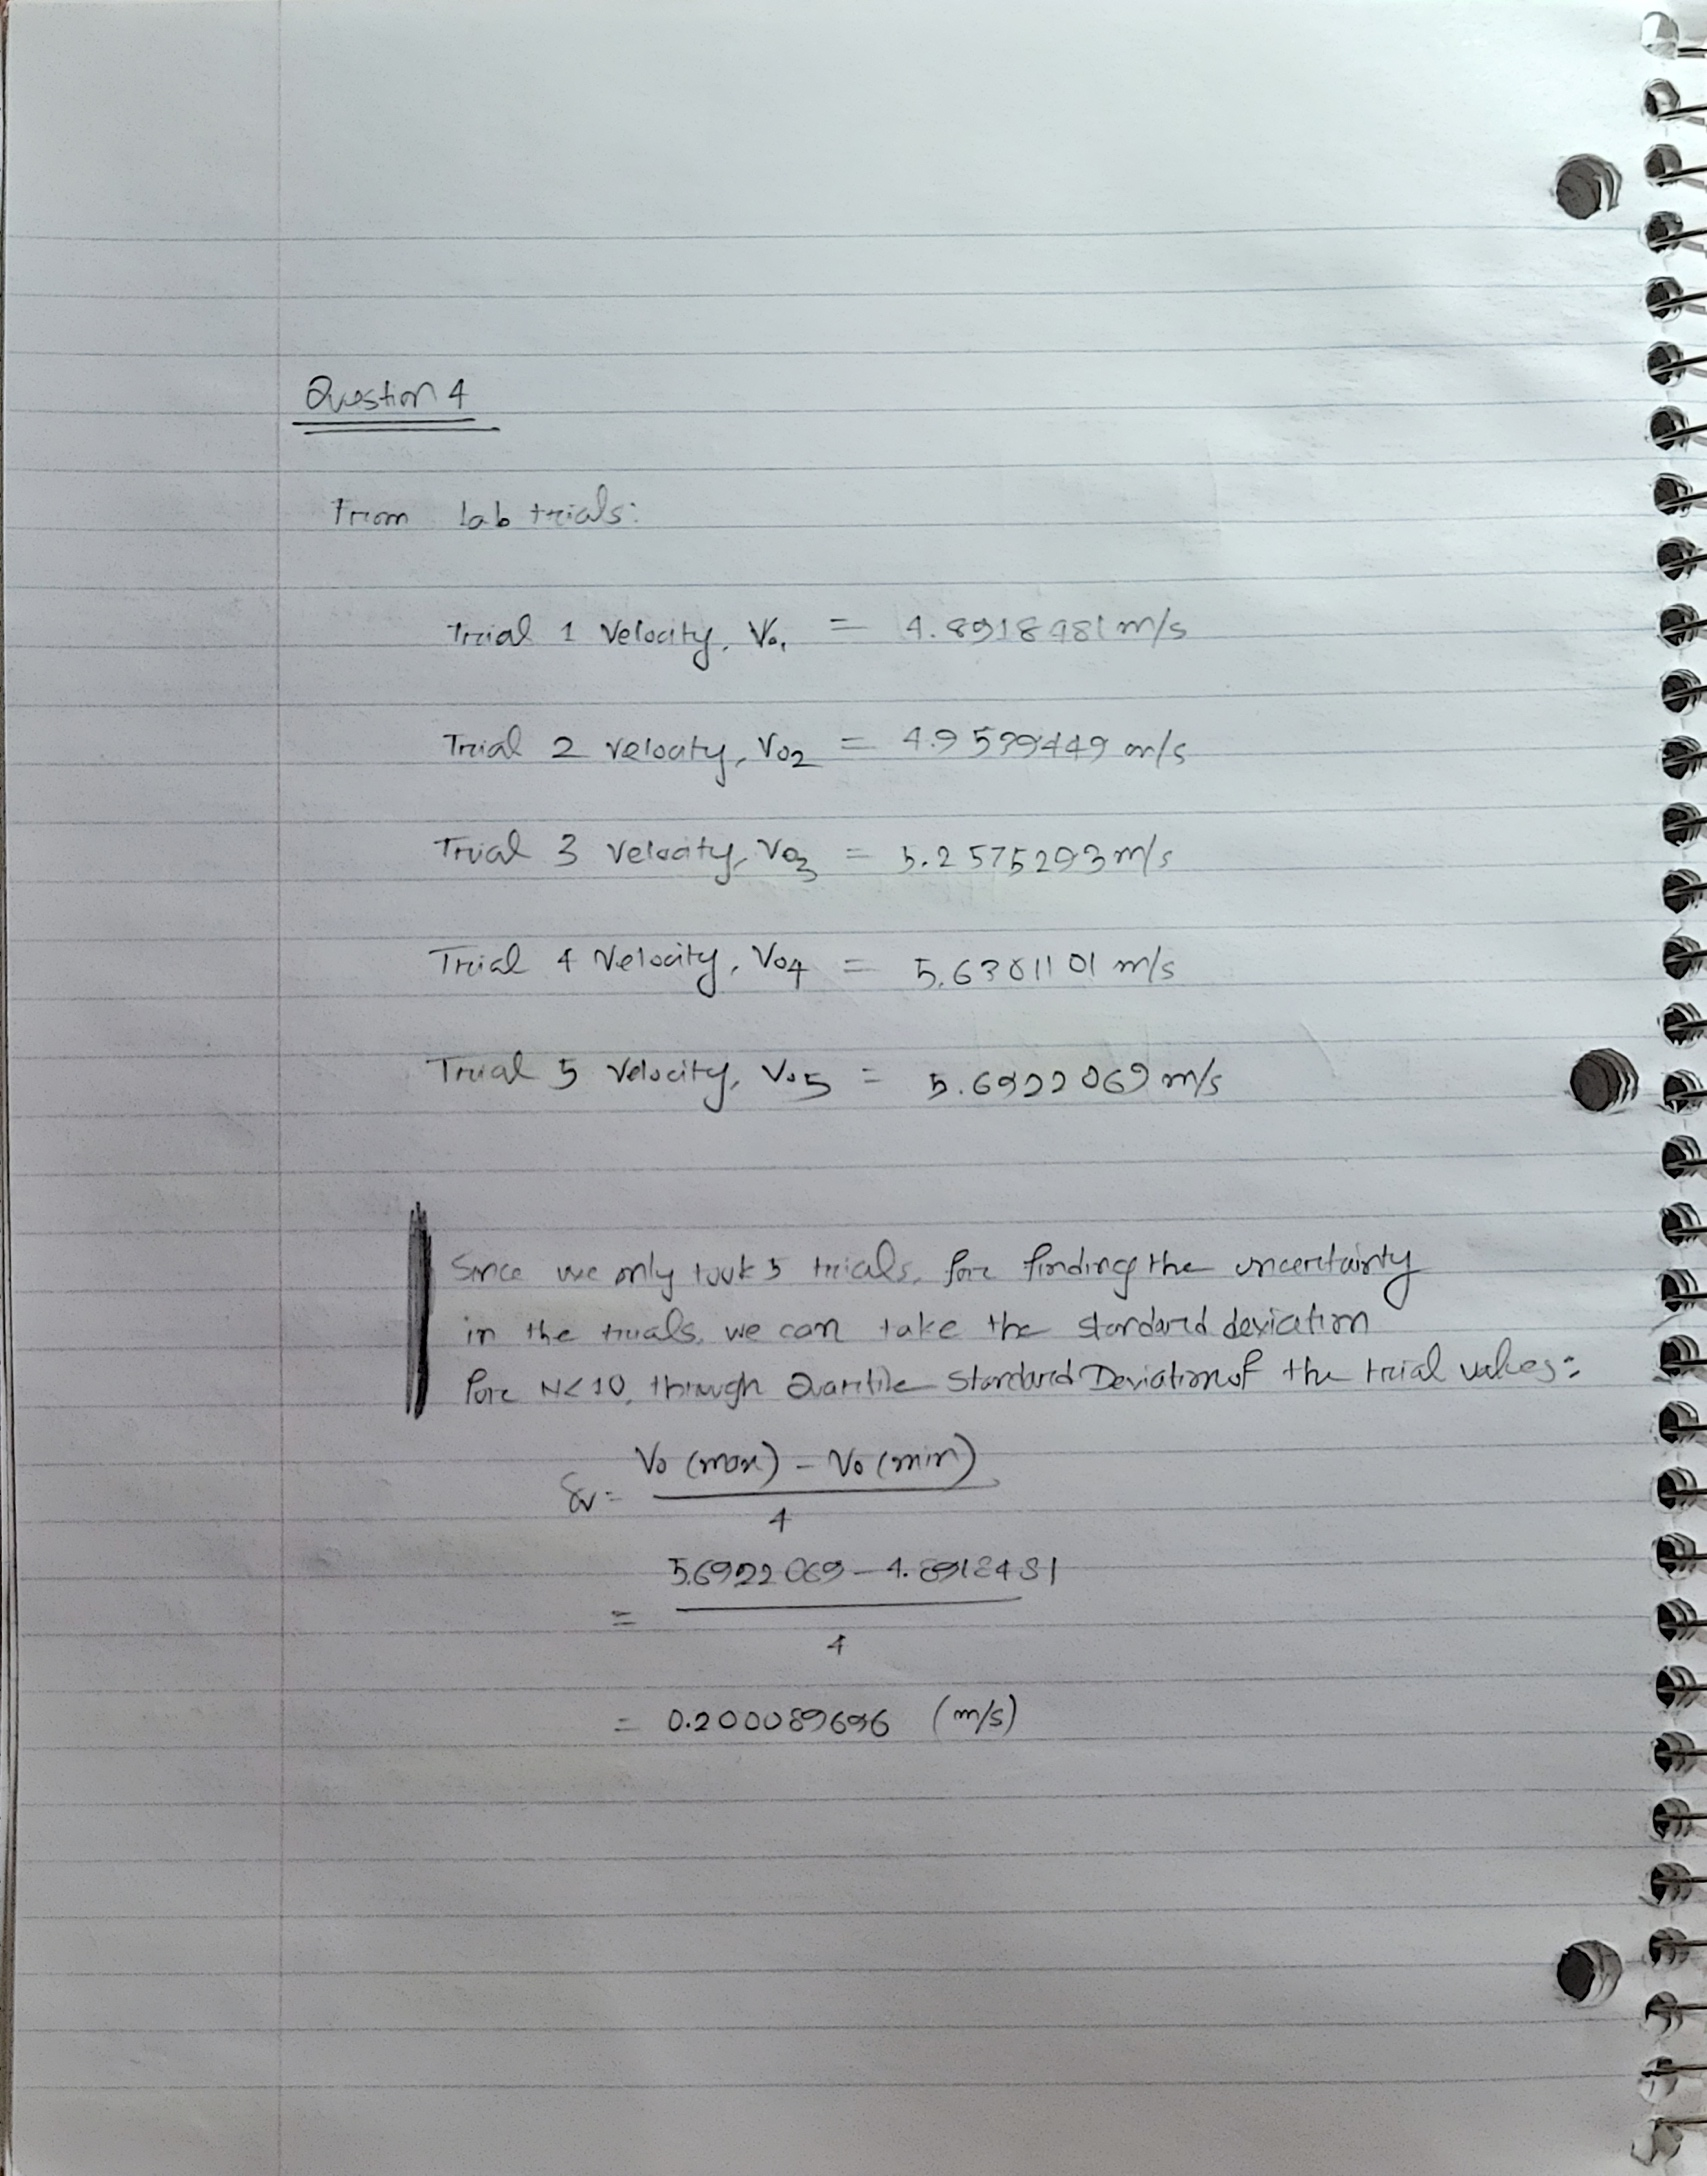 Question 4
From lab trials:
Trial 1 Velocity, V₀₁ = 4.8918481 m/s
Trial 2 velocity, V₀₂ = 4.9579449 m/s
Trial 3 velocity, V₀₃ = 5.2575293 m/s
Trial 4 Velocity, V₀₄ = 5.6381101 m/s
Trial 5 Velocity, V₀₅ = 5.6922069 m/s
Since we only took 5 trials, for finding the uncertainty
in the trials, we can take the standard deviation
for N<10, through Quartile Standard Deviation of the trial values:
δv = V₀ (max) - V₀ (min)
4
= 5.6922069 - 4.8918481
4
= 0.200089696 (m/s)